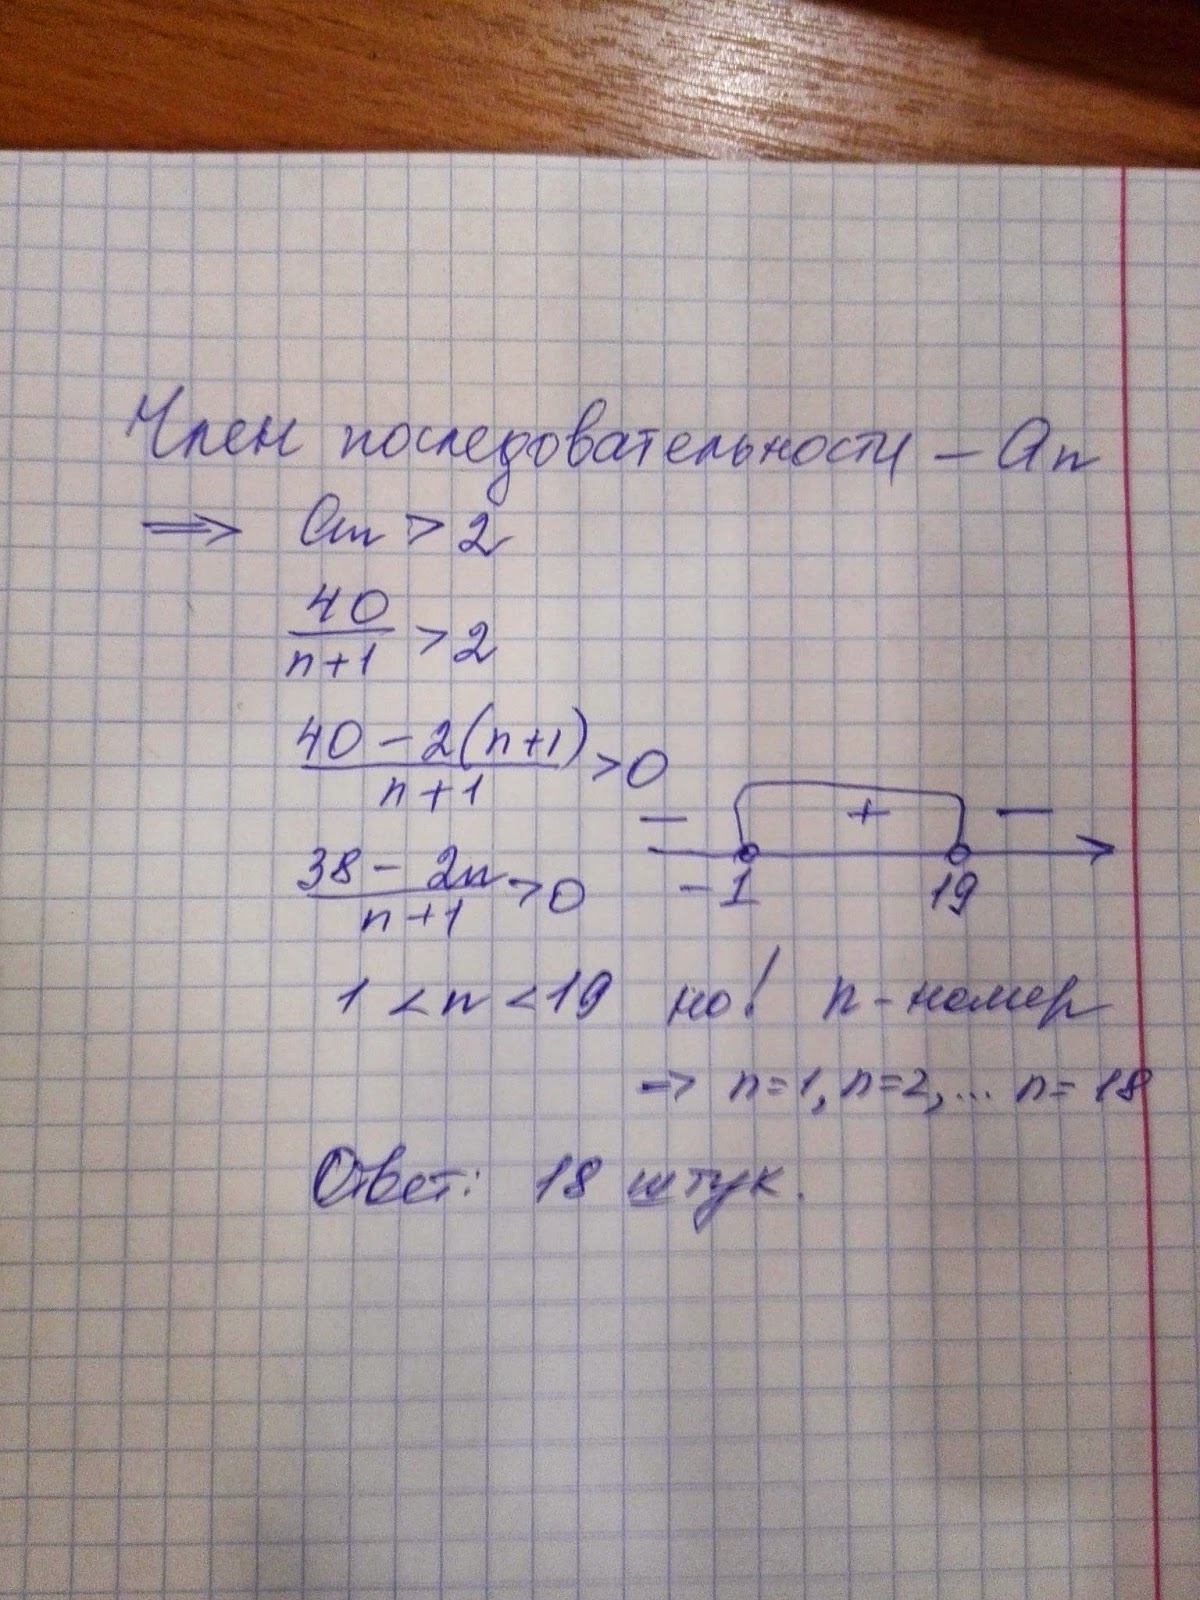 Член последовательности – an
⇒ an > 2
40/(n+1) > 2
(40 – 2(n+1))/(n+1) > 0
– + –
–1 19
(38 – 2n)/(n+1) > 0
1 < n < 19 но! n - номер
→ n=1, n=2, ... n=18
Ответ: 18 штук.